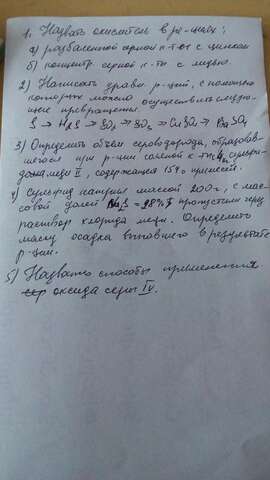 1. Назвать окислитель в р-циях:
а) разбавленной серной к-ты с цинком
б) концентр. серной к-ты с медью.
2) Написать уравн. р-ций, с помощью
которых можно осуществить следую-
щие превращения
S → H₂S → SO₂ → SO₃ → CuSO₄ → BaSO₄
3) Определить объём сероводорода, образовав-
шегося при р-ции соляной к-ты с сульфи-
дом меди II, содержащей 15% примесей.
4) Сульфид натрия массой 200г, с мас-
совой долей Na₂S = 98% пропустили через
раствор хлорида меди. Определить
массу осадка выпавшего в результате
р-ции.
5) Назвать способы применения
оксида серы IV.